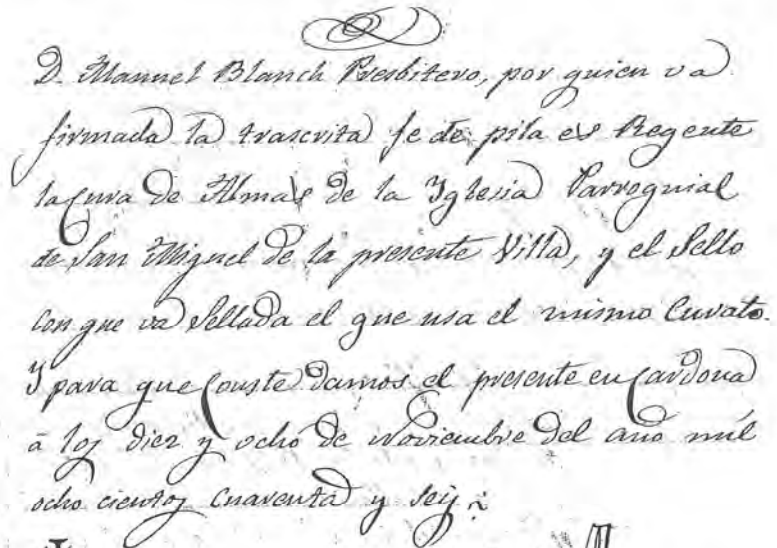 D. Manuel Blanch Presbitero, por quien va
firmada la trascrita fe de pila es Regente
la Cura de Almas de la Yglesia Parroquial
de San Miguel de la presente Villa, y el Sello
con que va Sellada el que usa el mismo Curato.
Y para que Conste damos el presente en Cardona
á los diez y ocho de Noviembre del año mil
ocho cientos Cuarenta y seis